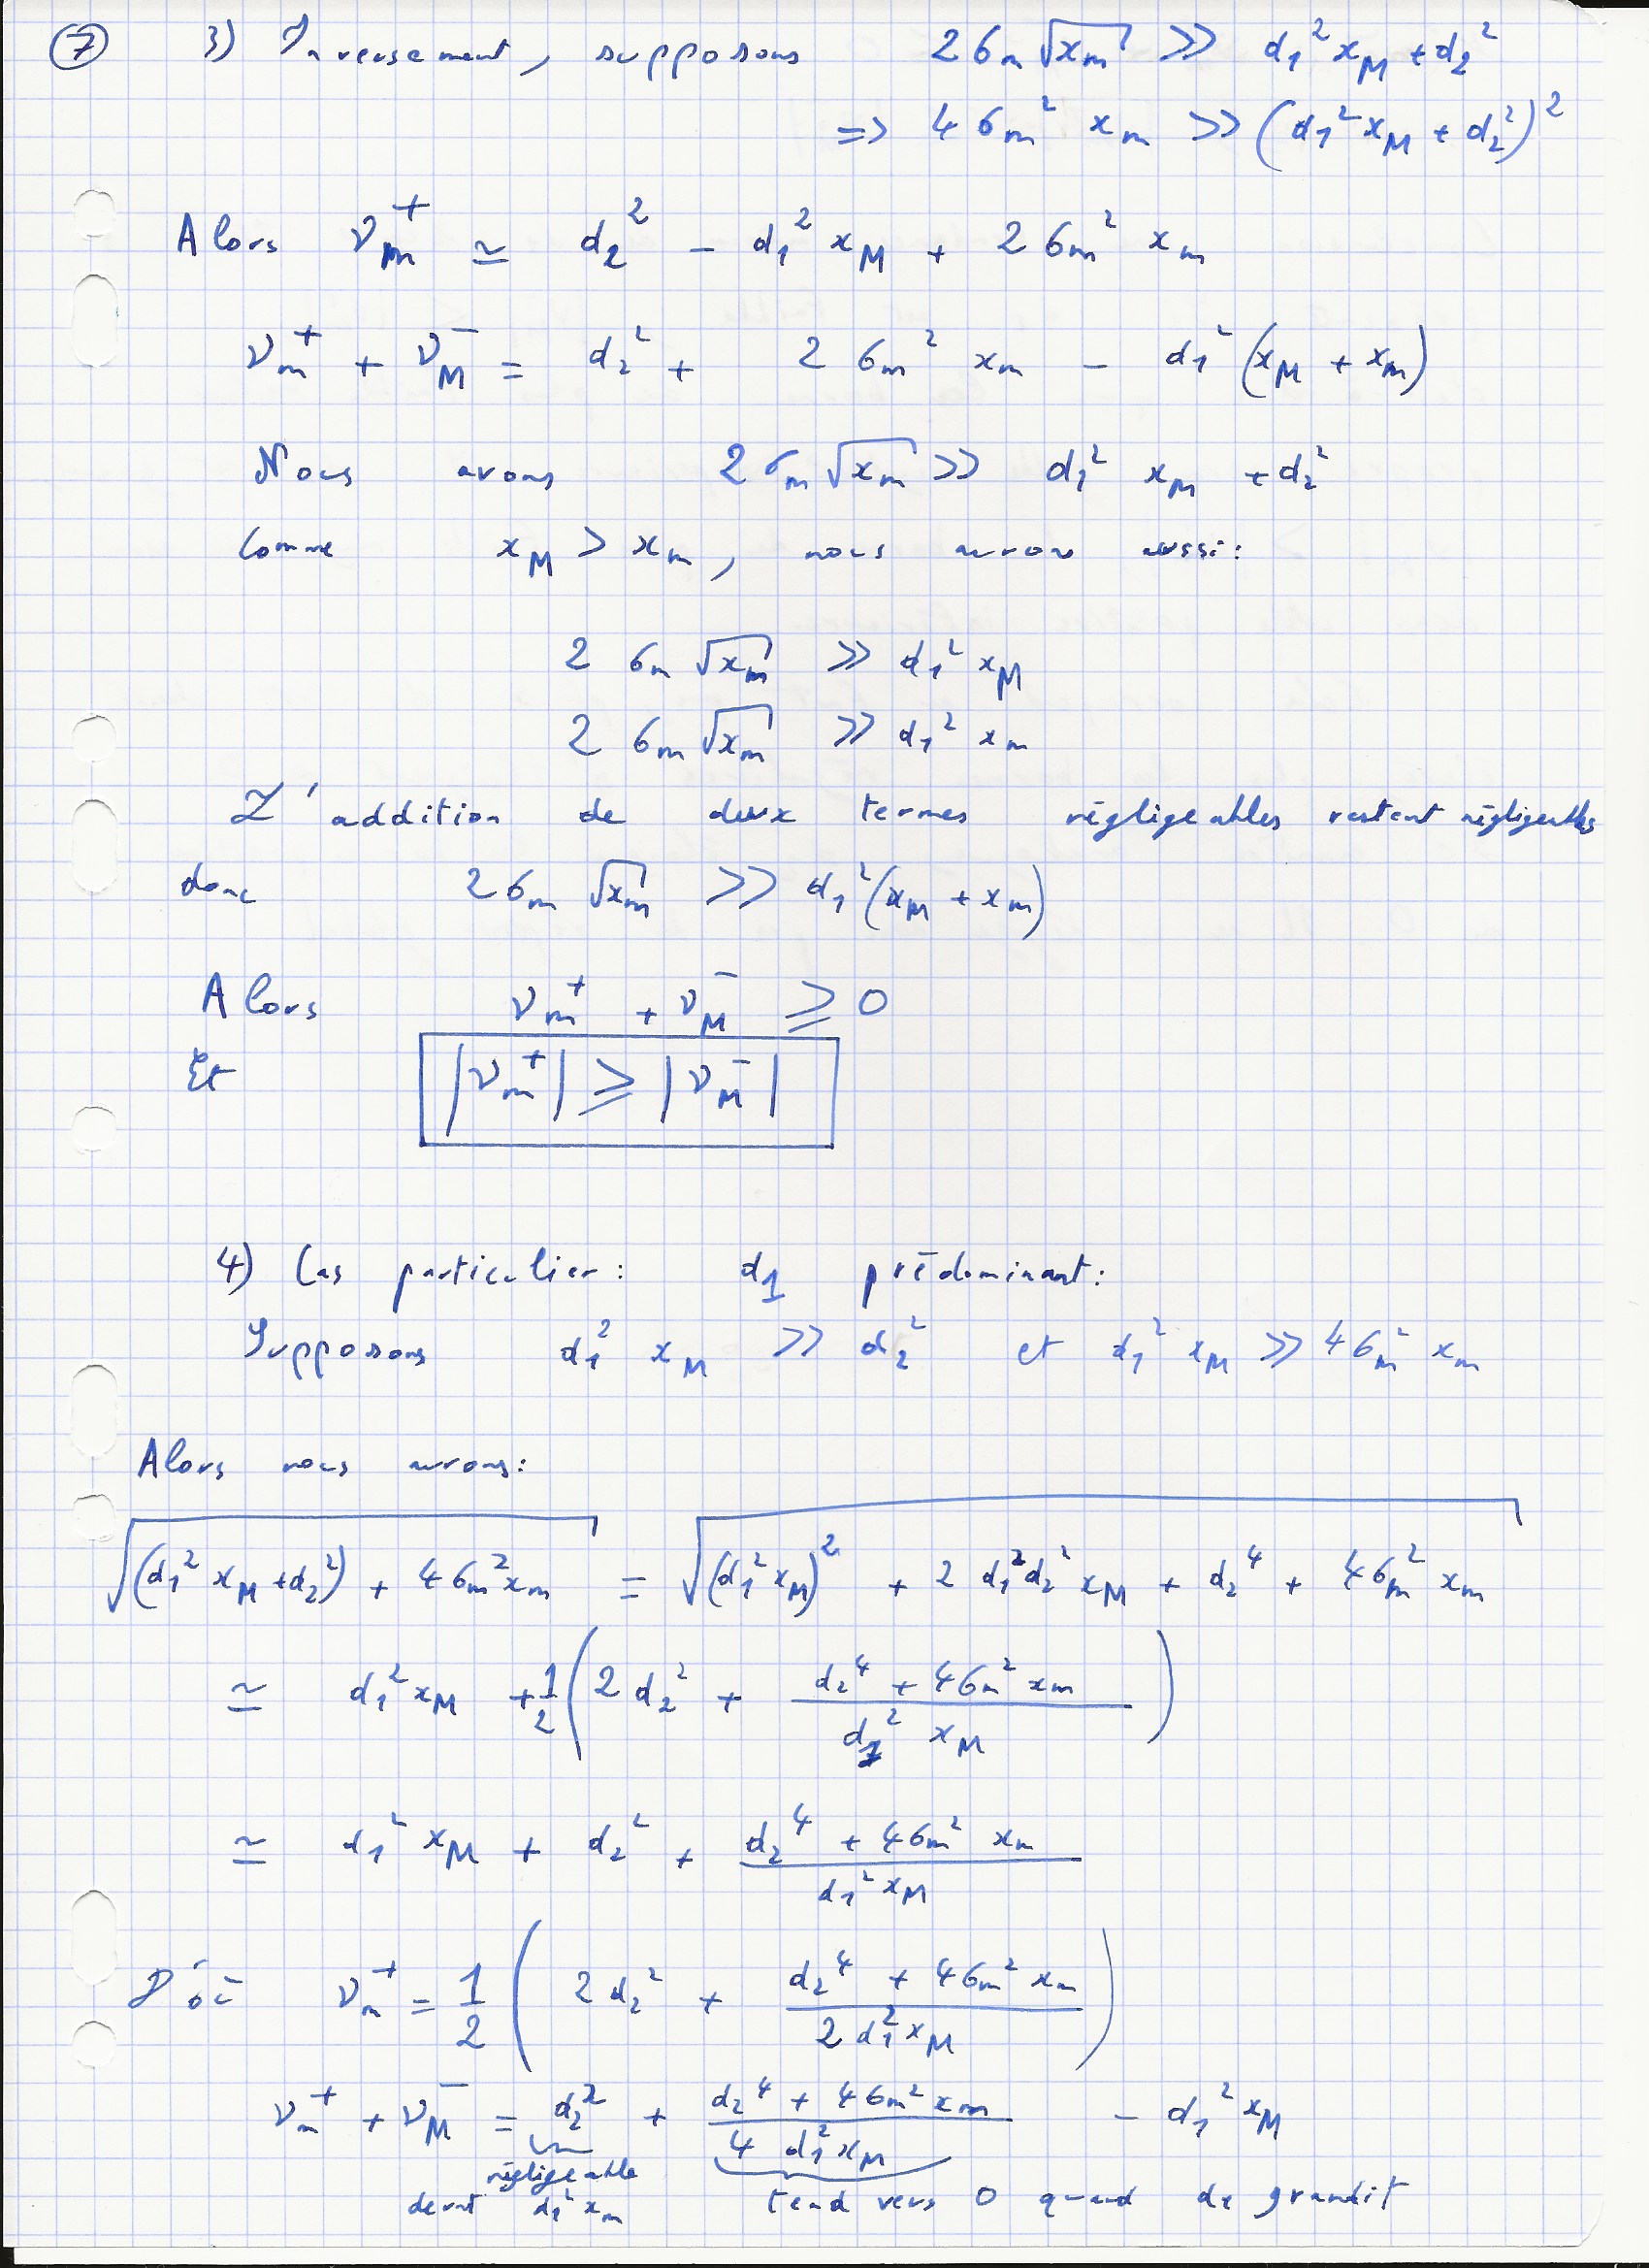 ⑦ 3) Inversement, supposons 2 σm √xm >> d1² xM + d2²
=> 4 σm² xm >> (d1² xM + d2²)²
Alors νm⁺ ≃ d2² - d1² xM + 2 σm² xm
νm⁺ + νM⁻ = d2² + 2 σm² xm - d1² (xM + xm)
Nous avons 2 σm √xm >> d1² xM + d2²
Comme xM > xm, nous avons aussi:
2 σm √xm >> d1² xM
2 σm √xm >> d1² xm
L'addition de deux termes négligeables restent négligeables
donc 2 σm √xm >> d1² (xM + xm)
Alors νm⁺ + νM⁻ ≥ 0
Et |νm⁺| ≥ |νM⁻|
4) Cas particulier: d1 prédominant:
Supposons d1² xM >> d2² et d1² xM >> 4 σm² xm
Alors nous avons:
√((d1² xM + d2²) + 4 σm² xm) = √((d1² xM)² + 2 d1² d2² xM + d2⁴ + 4 σm² xm)
≃ d1² xM + 1/2 (2 d2² + (d2⁴ + 4 σm² xm) / (d1² xM))
≃ d1² xM + d2² + (d2⁴ + 4 σm² xm) / (d1² xM)
D'où νm⁺ = 1/2 (2 d2² + (d2⁴ + 4 σm² xm) / (2 d1² xM))
νm⁺ + νM⁻ = d2² + (d2⁴ + 4 σm² xm) / (4 d1² xM) - d1² xM
négligeable
devant d1² xm tend vers 0 quand d1 grandit